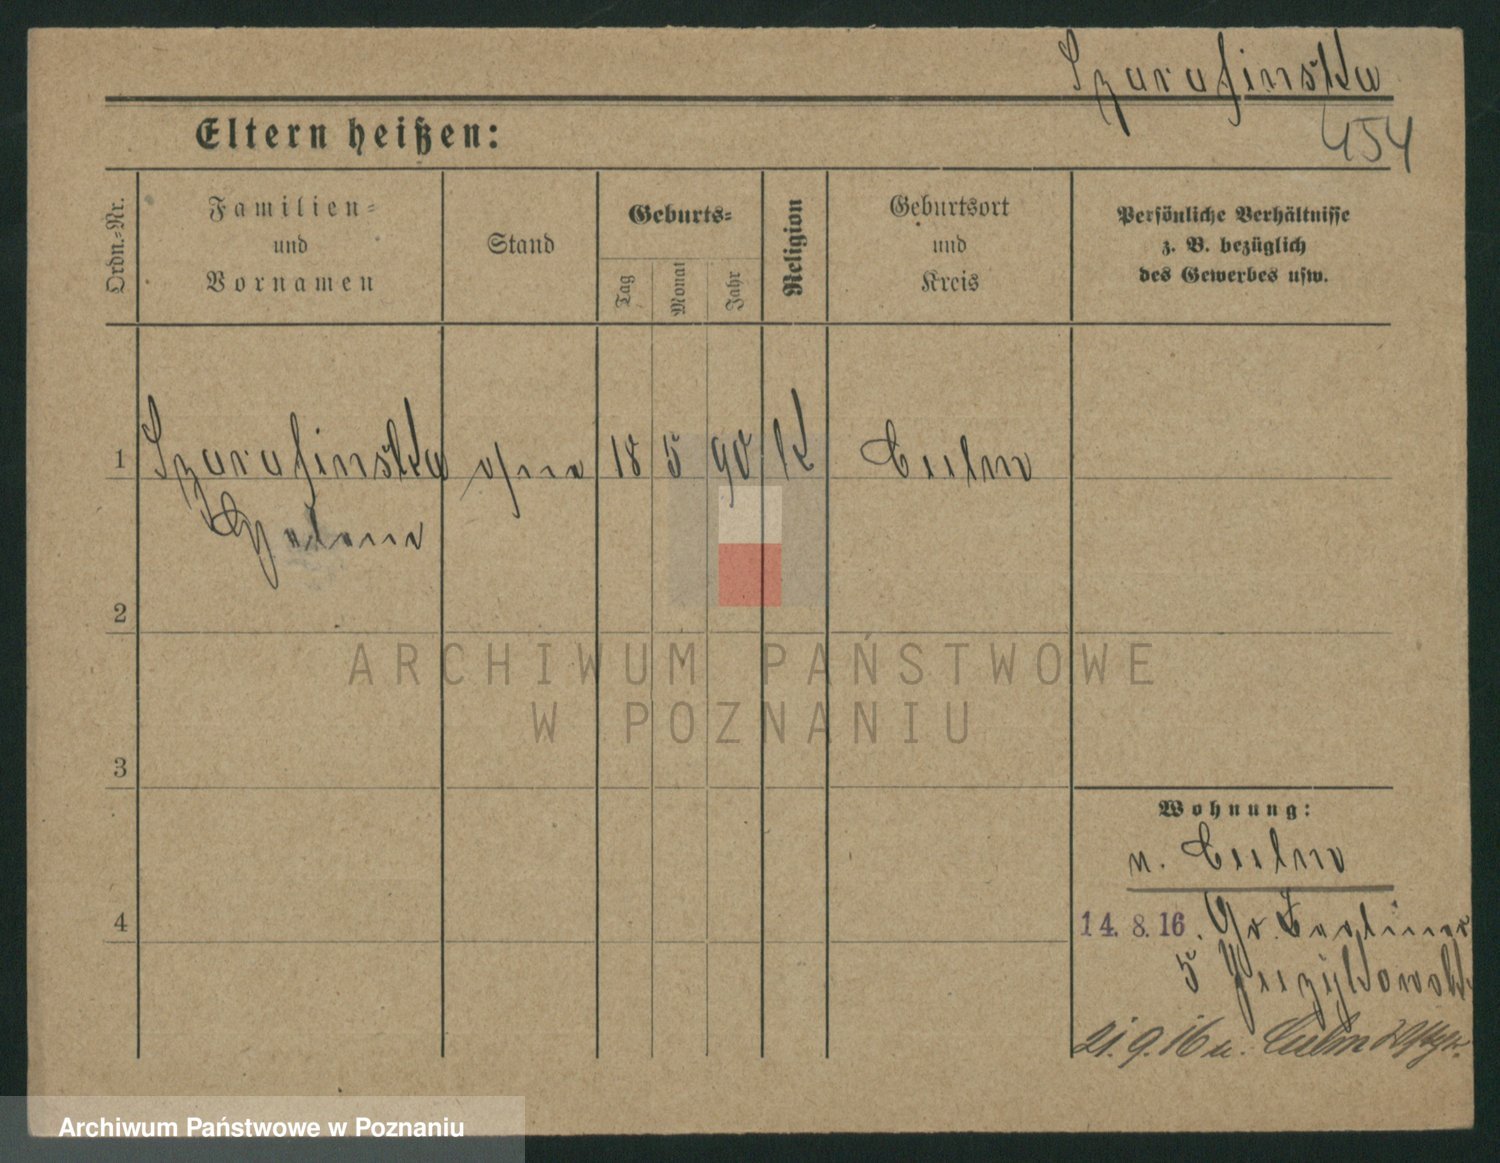 Szarafinska
454
Eltern heißen:
Ordn.-Nr.
Familien-
und
Vornamen
Stand
Geburts-
Tag
Monat
Jahr
Religion
Geburtsort
und
Kreis
Persönliche Verhältnisse
z. B. bezüglich
des Gewerbes usw.
1 Szarafinska ohne 18 5 90 K Culm
Helene
2
ARCHIWUM PAŃSTWOWE
W POZNANIU
3
Wohnung:
n. Culm
4
14. 8. 16. Gr. Berliner
5
21. 9. 16 n. Culm
Archiwum Państwowe w Poznaniu